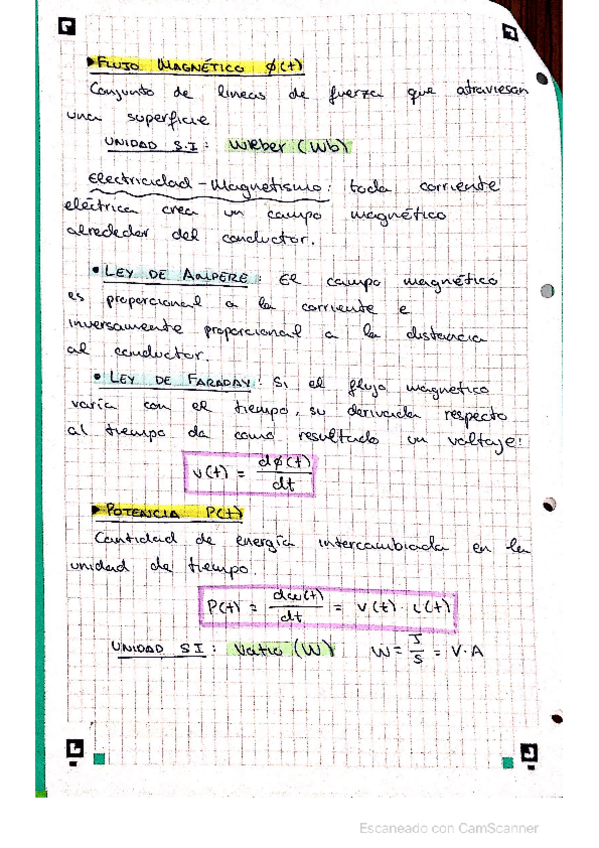 ▸FLUJO MAGNÉTICO φ(t)
Conjunto de líneas de fuerza que atraviesan
una superficie
UNIDAD S.I: Wieber (Wb)
Electricidad - Magnetismo: toda corriente
eléctrica crea un campo magnético
alrededor del conductor.
• LEY DE AMPERE: El campo magnético
es proporcional a la corriente e
inversamente proporcional a la distancia
al conductor.
• LEY DE FARADAY: Si el flujo magnético
varía con el tiempo, su derivada respecto
al tiempo da como resultado un voltaje:
v(t) = dφ(t)/dt
▸POTENCIA P(t)
Cantidad de energía intercambiada en la
unidad de tiempo.
P(t) = dw(t)/dt = v(t) · i(t)
UNIDAD SI: Vatio (W) W = J/s = V·A
Escaneado con CamScanner